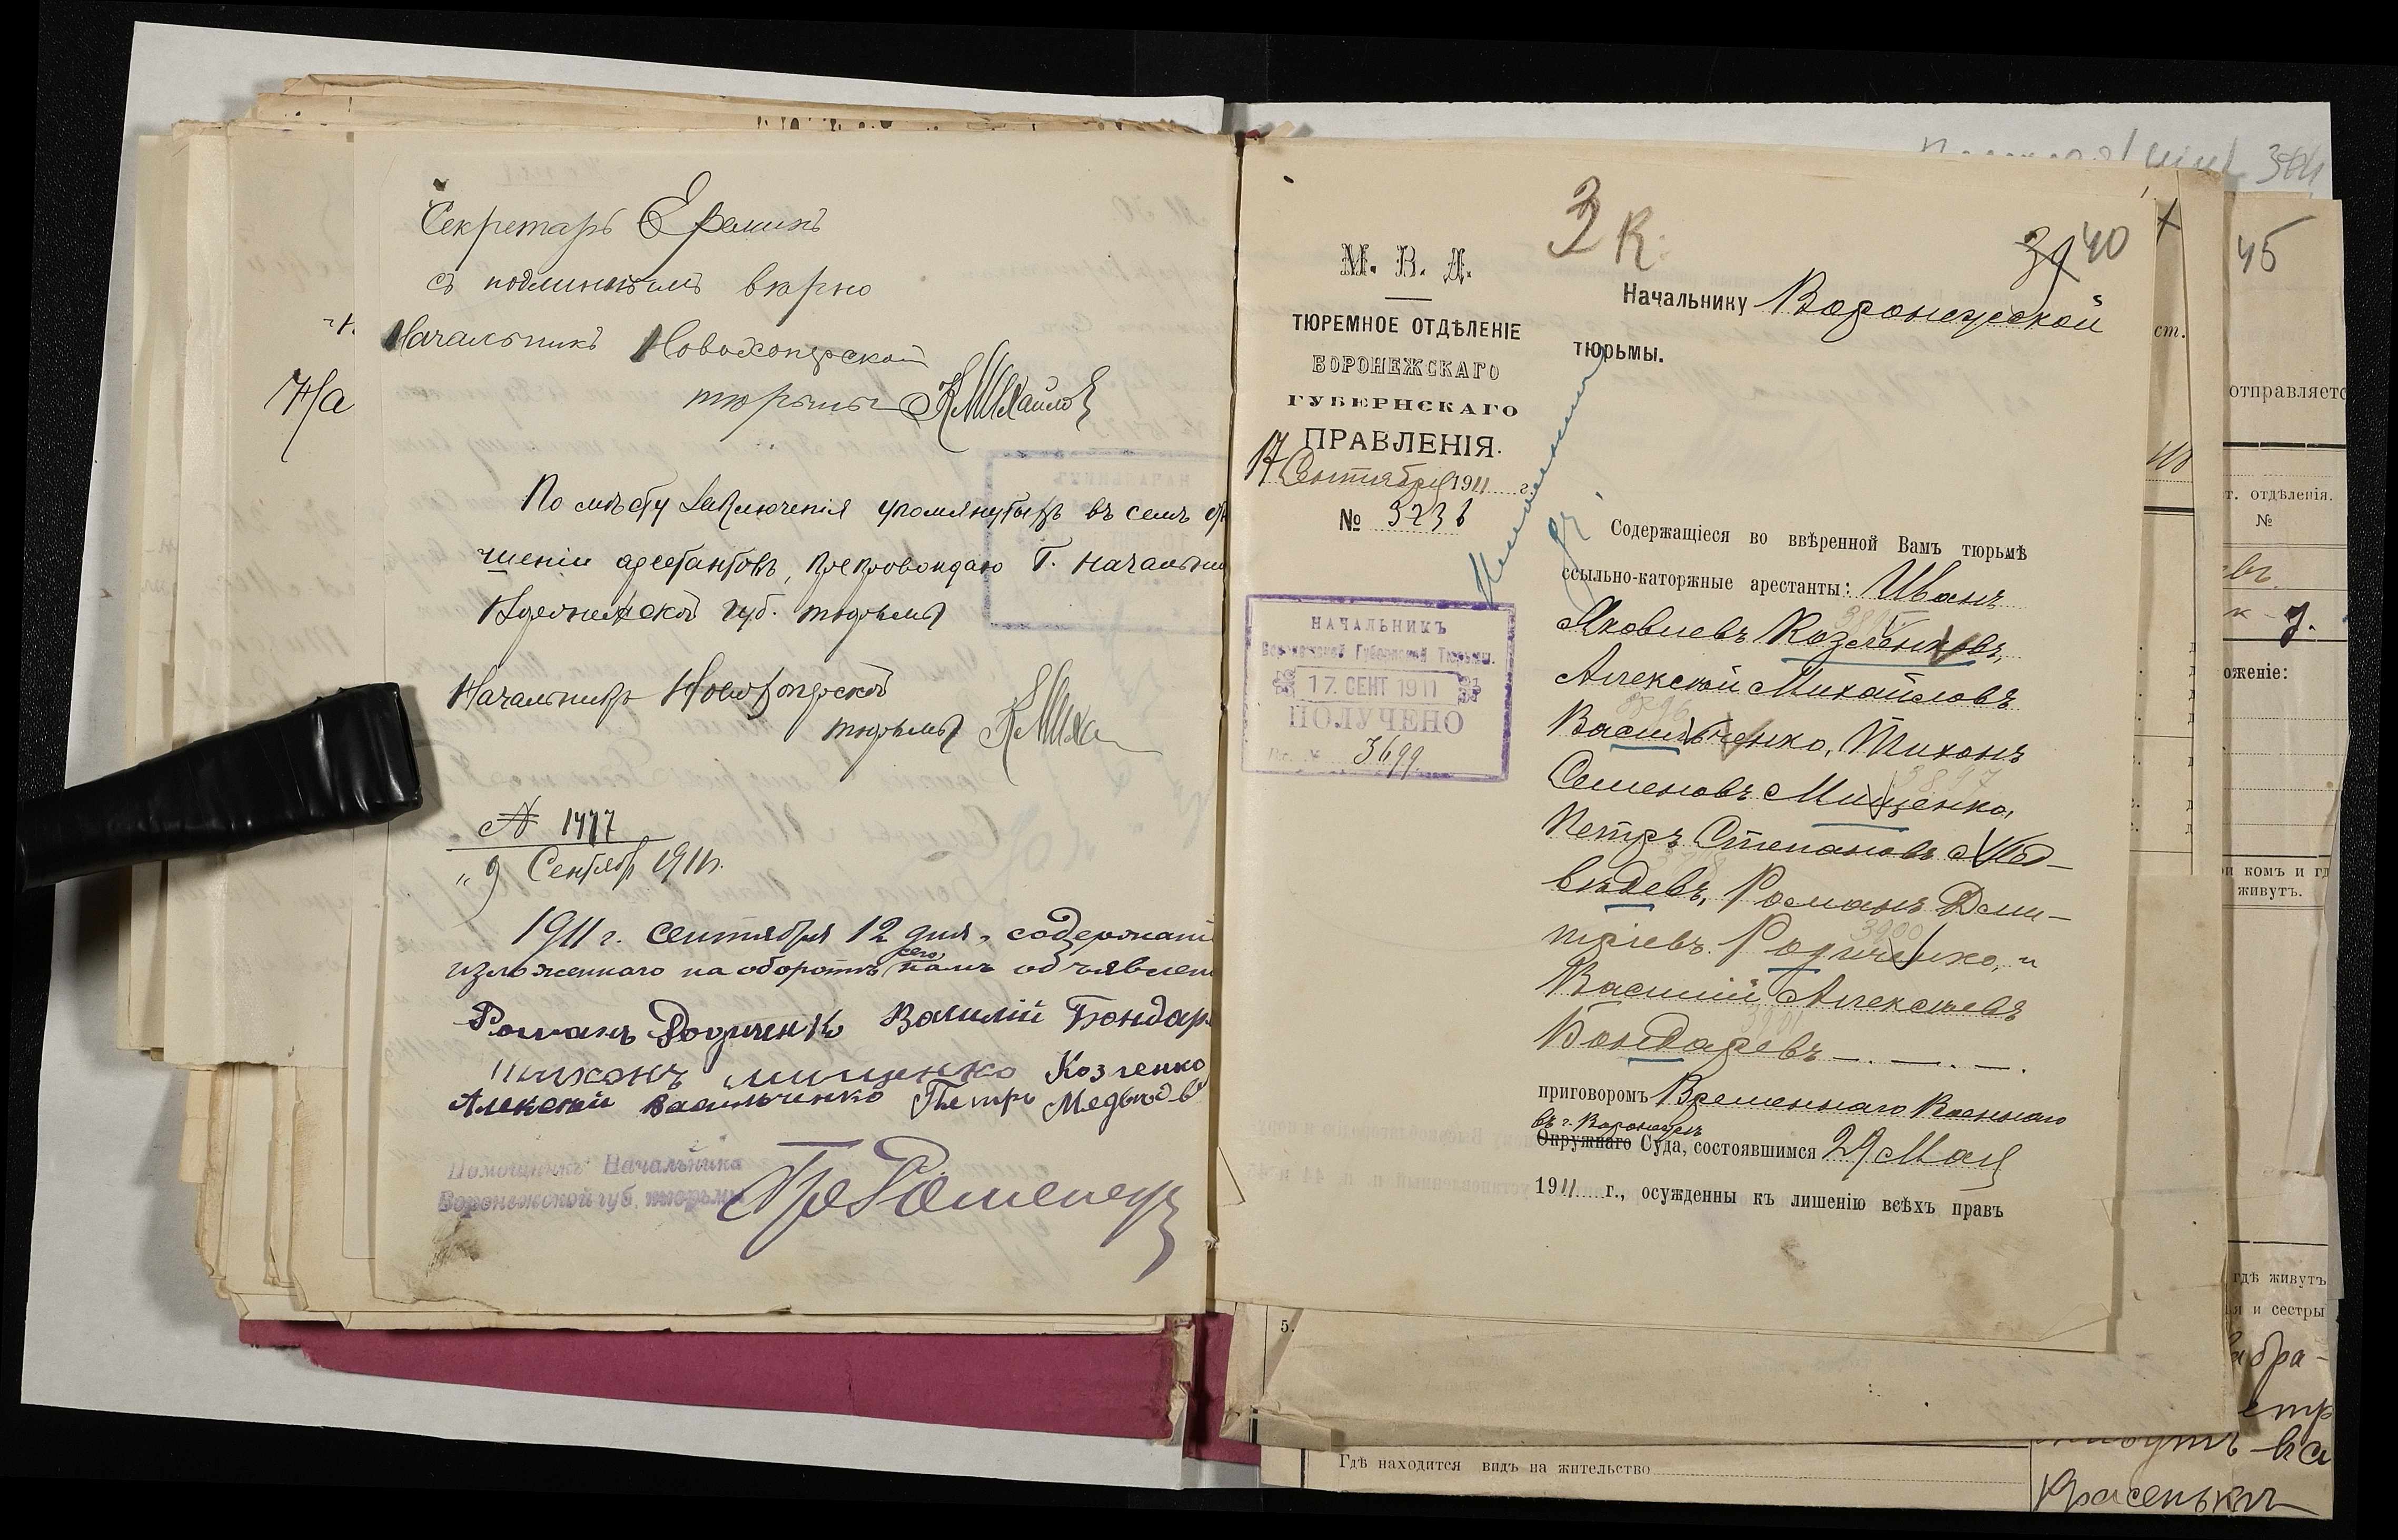 Секретарь Еремин
съ подлиннымъ вѣрно
Начальникъ Новохоперской
тюрьмы КМихайлов
По мѣсту заключенія упомянутыхъ въ семъ от
шеніи арестантовъ, препровождаю Г. Начальни
Воронежской губ. тюрьмы
Начальникъ Новохоперской
тюрьмы КМиха
№ 1477
"9 Сентября 1911 г.
1911 г. сентября 12 дня, содержані
изложеннаго на оборотѣ сего намъ объявлен
Романъ Родиченко Василій Бондар
Тихонъ Мищенко Козленко
Алексѣй Васильченко Петръ Медвѣдев
Помощникъ Начальника
Воронежской губ. тюрьмы
На
3 к.
39 40
М. В. Д.
ТЮРЕМНОЕ ОТДѢЛЕНІЕ
ВОРОНЕЖСКАГО
ГУБЕРНСКАГО
ПРАВЛЕНІЯ.
17 Сентября 1911 г.
№ 3236
Начальнику Воронежской
тюрьмы.
НАЧАЛЬНИКЪ
Воронежской Губернской Тюрьмы.
17 СЕНТ 1911
ПОЛУЧЕНО
3699
Содержащіеся во ввѣренной Вамъ тюрьмѣ
ссыльно-каторжные арестанты: Иванъ
Яковлевъ Козленковъ,
Алексѣй Михайловъ
Васильченко, Тихонъ
Семеновъ Мищенко,
Петръ Степановъ Мед-
вѣдевъ, Романъ Дми-
тріевъ Родиченко, и
Василій Алексѣевъ
Бондаревъ
3900
3901
приговоромъ Временнаго Военнаго
въ г. Воронежѣ
Окружнаго Суда, состоявшимся 29 Мая
1911 г., осужденны къ лишенію всѣхъ правъ
45
ст.
отправляетс
т. отдѣленія.
№
оженіе:
и комъ и гд
живутъ.
гдѣ живутъ
и сестры
5.
Гдѣ находится видъ на жительство